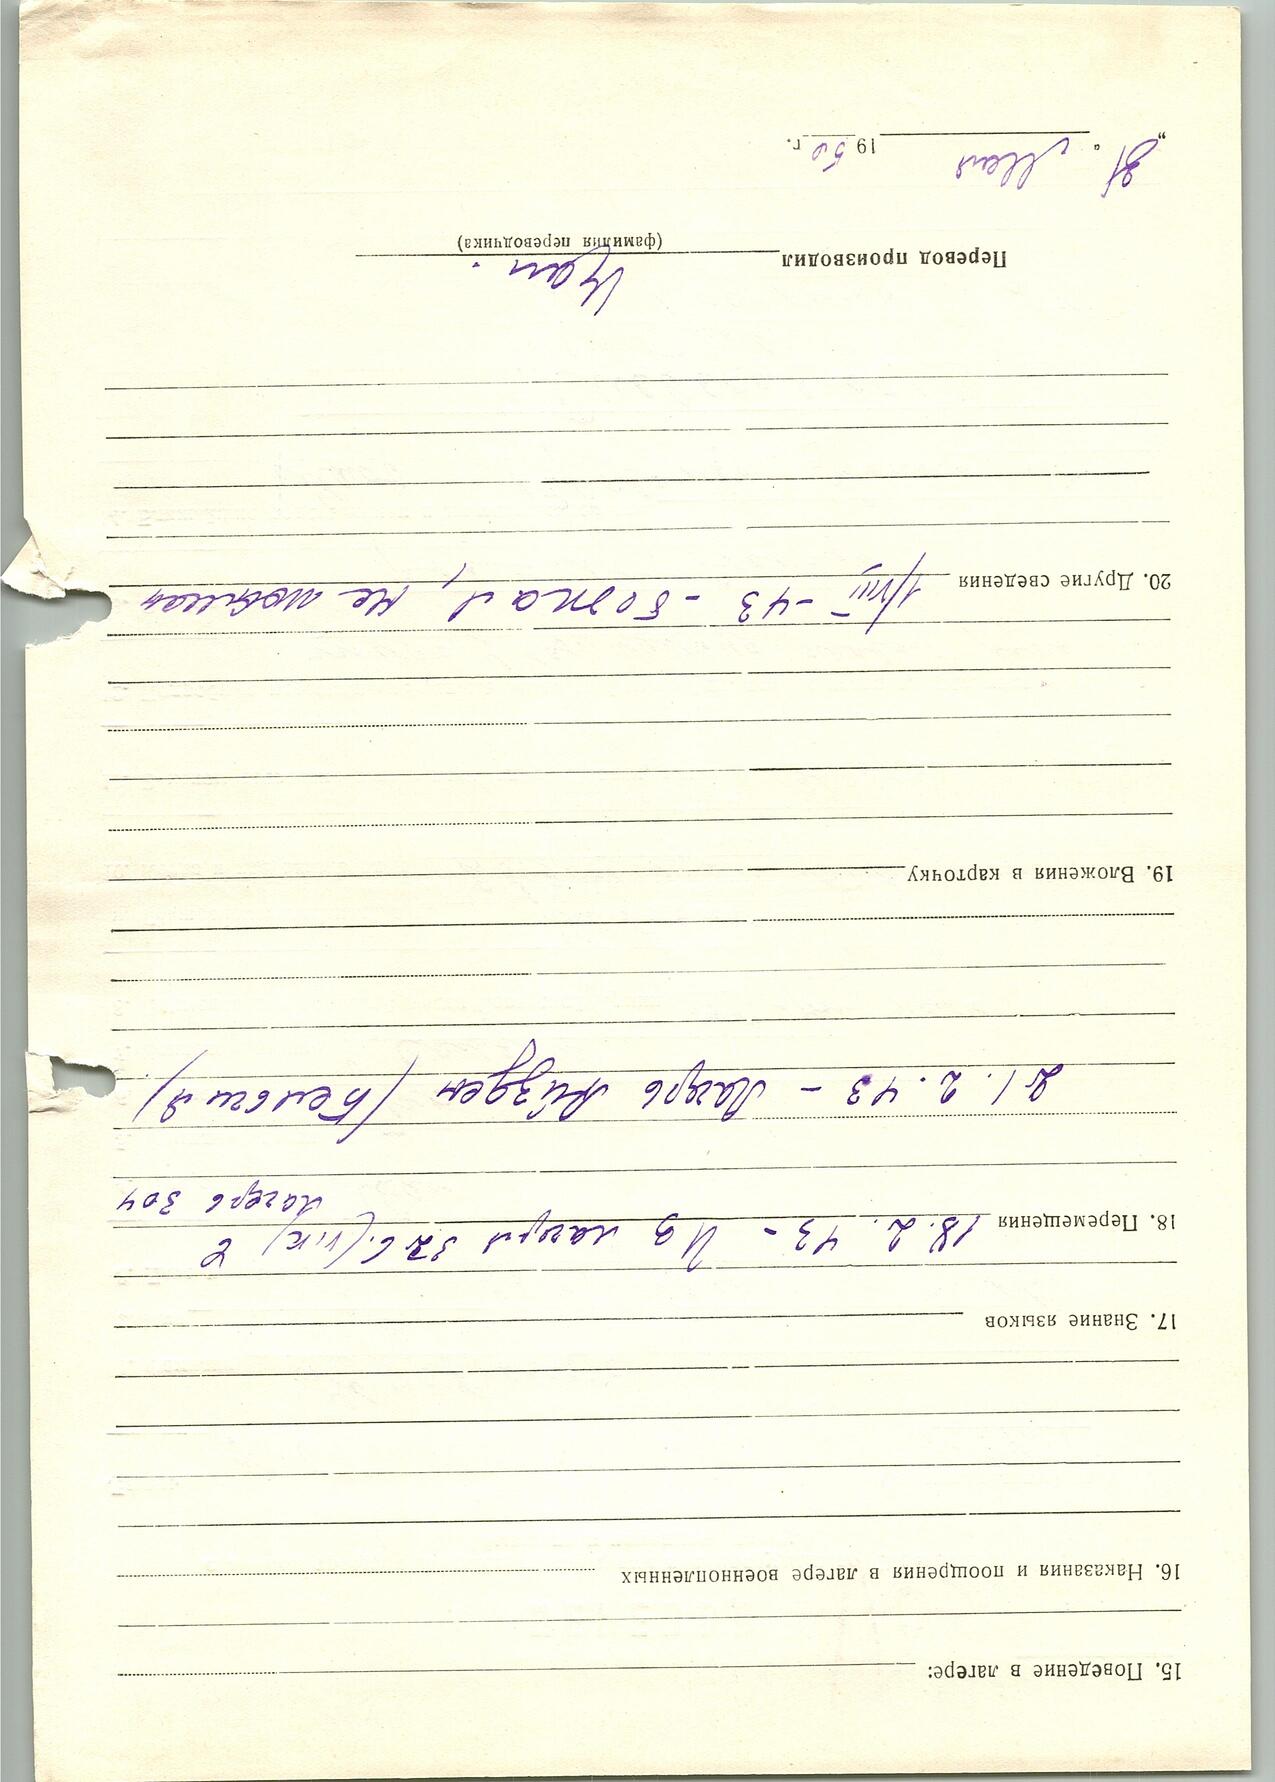 15. Поведение в лагере:
16. Наказания и поощрения в лагере военнопленных
17. Знание языков
18. Перемещения 18.2.43 - Из лагеря 326 (VI K) в
лагерь 304
21.2.43 - Лагерь Айзден (Бельгия)
19. Вложения в карточку
20. Другие сведения 1/VIII-43 - бежал, не пойман
Перевод производил
(фамилия переводчика)
„31“ мая 1950 г.